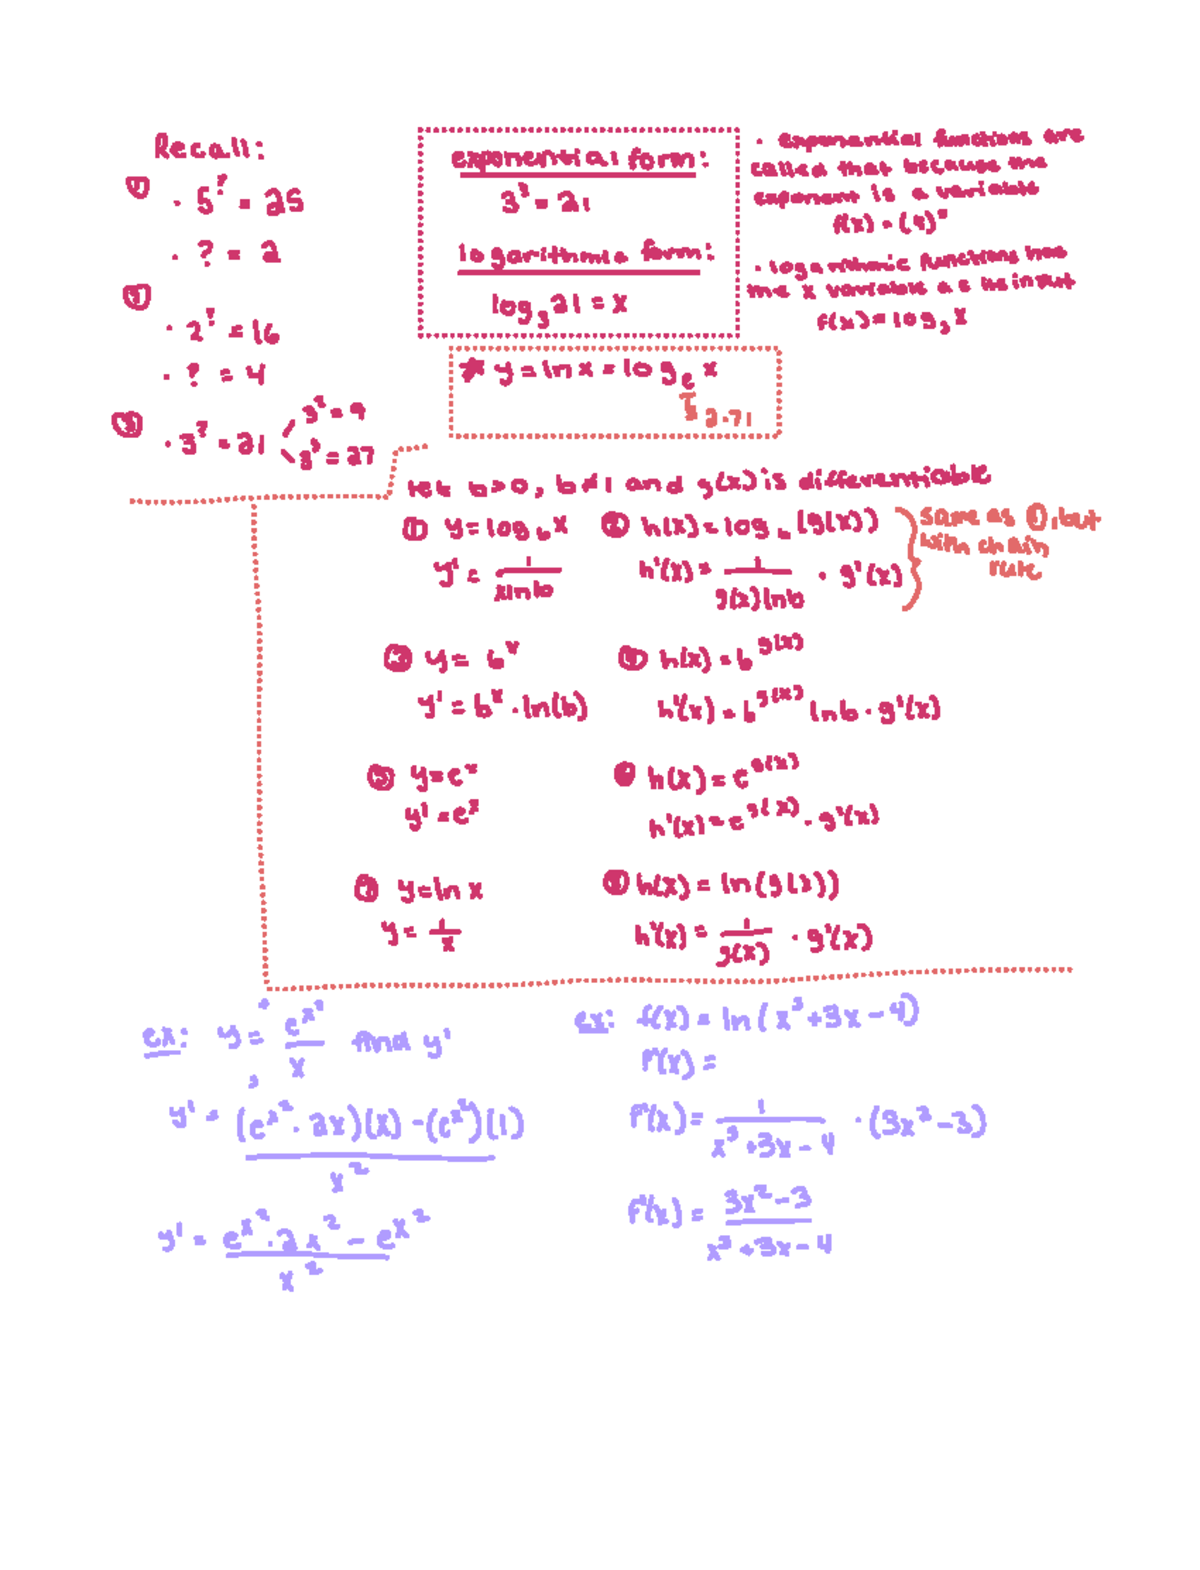 Recall:
① · 5^? = 25
· ? = 2
② · 2^? = 16
· ? = 4
③ · 3^? = 21 3² = 9
3³ = 27
exponential form:
3^? = 21
logarithmic form:
log₃ 21 = x
· exponential functions are
called that because the
exponent is a variable
f(x) = (4)^x
· logarithmic functions has
the x variable as its input
f(x) = log₃ x
* y = ln x = log_e x
2.71
let b>0, b≠1 and g(x) is differentiable
① y = log_b x ② h(x) = log_b (g(x)) } same as ①, but
with chain
rule
y' = 1/(x ln b) h'(x) = 1/(g(x) ln b) · g'(x)
③ y = b^x ④ h(x) = b^g(x)
y' = b^x · ln(b) h'(x) = b^g(x) ln b · g'(x)
⑤ y = e^x ⑥ h(x) = e^g(x)
y' = e^x h'(x) = e^g(x) · g'(x)
⑦ y = ln x ⑧ h(x) = ln(g(x))
y = 1/x h'(x) = 1/g(x) · g'(x)
ex: y = e^x²/x find y'
y' = (e^x² · 2x)(x) - (e^x²)(1) / x²
y' = e^x² · 2x² - e^x² / x²
ex: f(x) = ln(x³+3x-4)
f'(x) =
f'(x) = 1/(x³+3x-4) · (3x²-3)
f'(x) = 3x²-3 / x³+3x-4